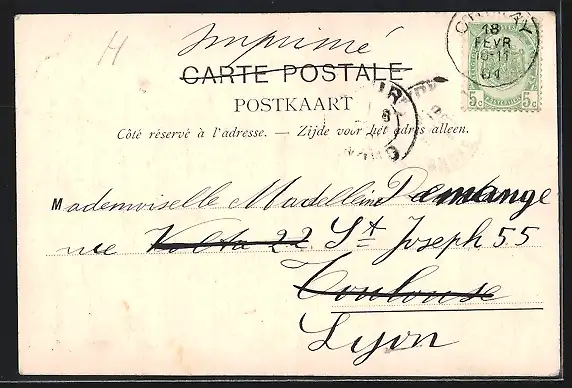 H
Imprimé
CARTE POSTALE
POSTKAART
Côté réservé à l'adresse. — Zijde voor het adres alleen.
18
FEVR
10-11
01
5c 5c
Mademoiselle Madelline Demange
rue Volta 22. St Joseph 55
Toulouse
Lyon